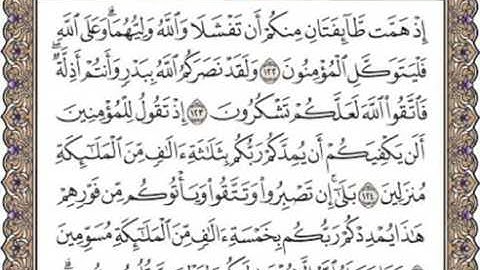 إِذْ هَمَّت طَّآئِفَتَانِ مِنكُمْ أَن تَفْشَلَا وَٱللَّهُ وَلِيُّهُمَا ۗ وَعَلَى ٱللَّهِ
فَلْيَتَوَكَّلِ ٱلْمُؤْمِنُونَ ١٢٢ وَلَقَدْ نَصَرَكُمُ ٱللَّهُ بِبَدْرٍ وَأَنتُمْ أَذِلَّةٌ ۖ
فَٱتَّقُوا۟ ٱللَّهَ لَعَلَّكُمْ تَشْكُرُونَ ١٢٣ إِذْ تَقُولُ لِلْمُؤْمِنِينَ
أَلَن يَكْفِيَكُمْ أَن يُمِدَّكُمْ رَبُّكُم بِثَلَـٰثَةِ ءَالَـٰفٍ مِّنَ ٱلْمَلَـٰٓئِكَةِ
مُنزَلِينَ ١٢٤ بَلَىٰٓ ۚ إِن تَصْبِرُوا۟ وَتَتَّقُوا۟ وَيَأْتُوكُم مِّن فَوْرِهِمْ
هَـٰذَا يُمْدِدْكُمْ رَبُّكُم بِخَمْسَةِ ءَالَـٰفٍ مِّنَ ٱلْمَلَـٰٓئِكَةِ مُسَوِّمِينَ